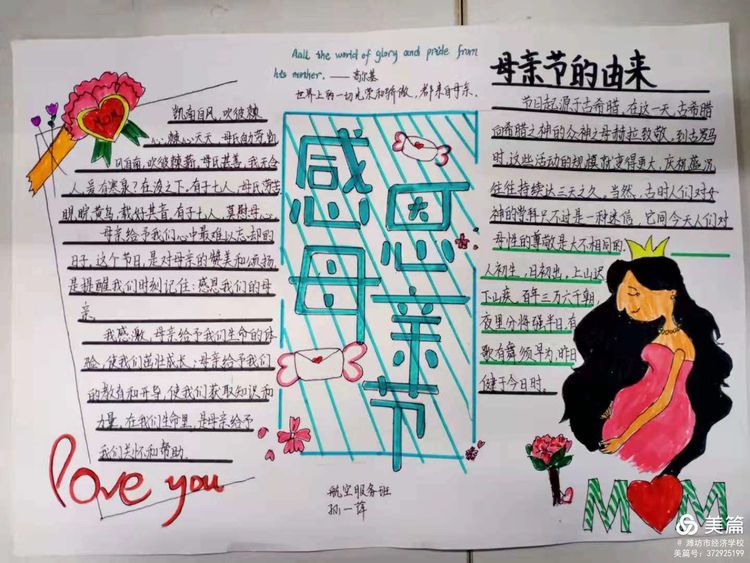 Aall the world of glory and pride from
his mother. ——高尔基
世界上的一切光荣和骄傲,都来自母亲。
凯南自风,吹彼棘
心,棘心夭夭,母氏劬劳凯
风自南,吹彼棘薪,母氏甚善,我无令
人,爰有寒泉?在浚之下,有子七人,母氏劳苦
睍睆黄鸟,载好其音,有子七人,莫慰母心。
母亲给予我们心中最难以忘却的
日子,这个节日,是对母亲的赞美和颂扬
是提醒我们时刻记住:感恩我们的母
亲
我感激,母亲给予我们生命的体
验,使我们茁壮成长,母亲给予我们
的教育和开导,使我们获取知识和
力量,在我们生命里,是母亲给予
我们关怀和帮助。
love you
感恩
母亲节
航空服务班
孙一萍
母亲节的由来
节日起源于古希腊,在这一天,古希腊
向希腊之神的众神之母赫拉致敬,到古罗马
时,这些活动的规模就变得更大,庆祝盛况
往往持续达三天之久。当然,古时人们对女
神的崇拜只不过是一种迷信,它同今天人们对
母性的尊敬是大不相同的
人初生,日初出,上山迟
下山疾,百年三万六千朝,
夜里分将强半日,有
歌有舞须早为,昨日
健于今日时。
MOM
美篇
# 潍坊市经济学校
美篇号:372925199